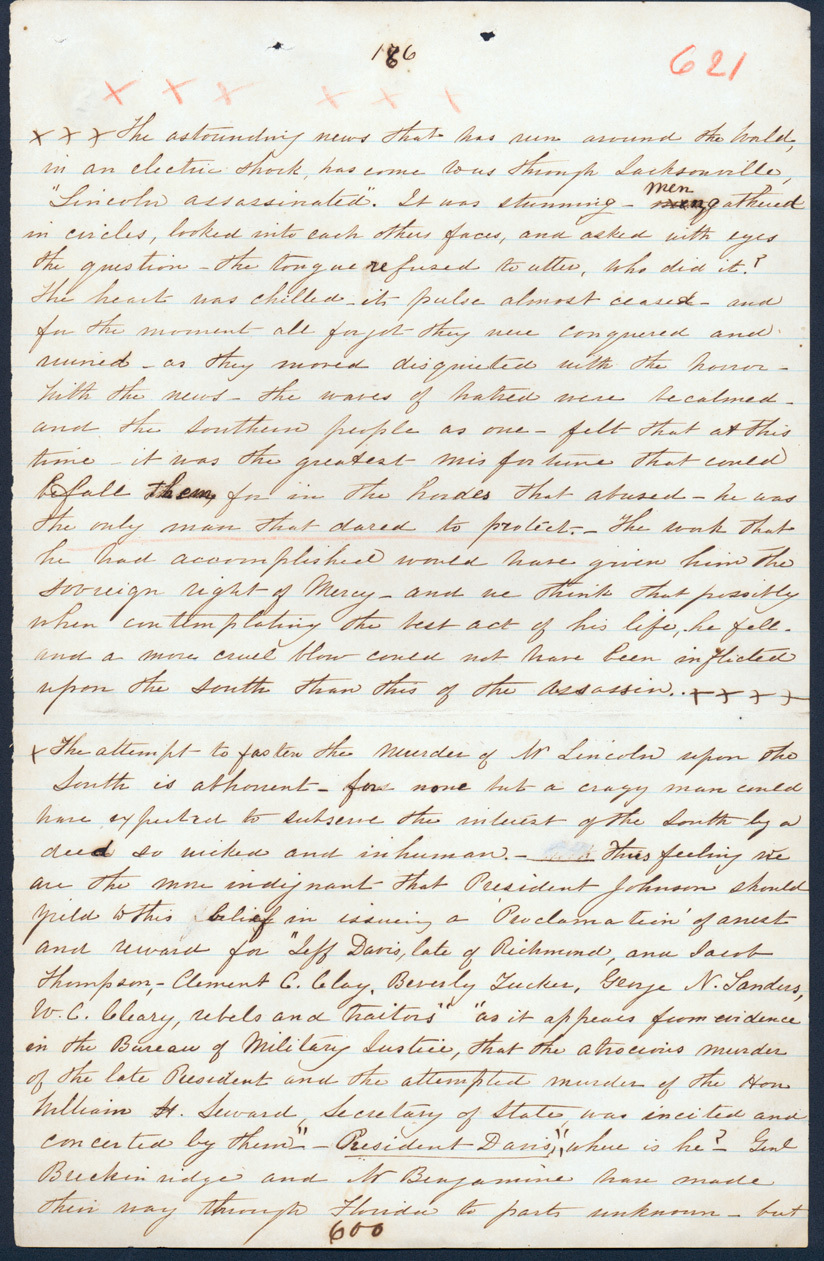 186
621
x x x x x x
x x x The astounding news that has run around the World,
in an electric shock, has come to us through Jacksonville,
"Lincoln assassinated". It was stunning - men gathered
in circles, looked into each others faces, and asked with eyes
the question - the tongue refused to utter, who did it?
The heart was chilled - its pulse almost ceased - and
for the moment all forgot they were conquered and
ruined - as they moved disquieted with the horror -
With the news - the waves of hatred were becalmed -
and the Southern people as one - felt that at this
time - it was the greatest misfortune that could
befall them, for in the hordes that abused - he was
the only man that dared to protect. - The work that
he had accomplished would have given him the
sovreign right of Mercy - and we think that possibly
when contemplating the best act of his life, he fell -
and a more cruel blow could not have been inflicted
upon the South than this of the Assassin. . x x x x
x The attempt to fasten the murder of Mr Lincoln upon the
South is abhorrent - for none but a crazy man could
have expected to subserve the interest of the South by a
deed so wicked and inhuman. - thus feeling we
are the more indignant that President Johnson should
yield to this belief in issuing a 'Proclamation' of arrest
and reward for "Jeff Davis, late of Richmond, and Jacob
Thompson, - Clement C. Clay, Beverly Tucker, George N. Sanders,
W. C. Cleary, rebels and traitors" "as it appears from evidence
in the Bureau of Military Justice, that the atrocious murder
of the late President and the attempted murder of the Hon
William H. Seward, Secretary of State, was incited and
concerted by them" - President Davis," where is he? - Genl
Breckinridge and Mr Bengamine have made
their way through Florida to parts unknown - but
600